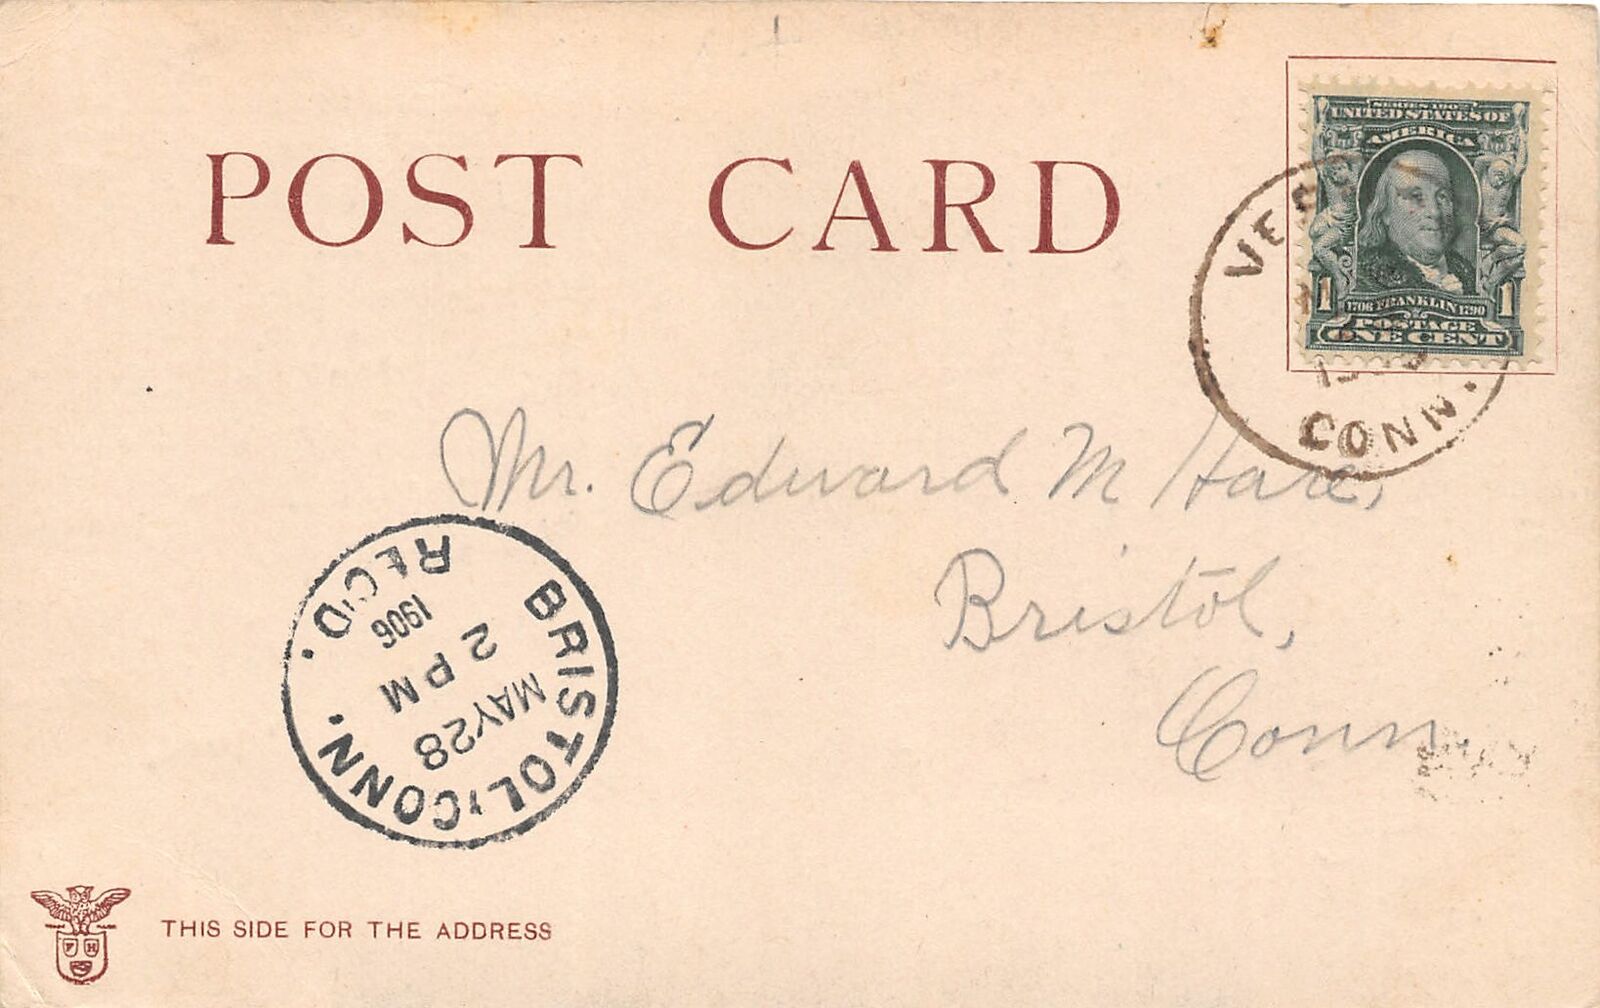 POST CARD
SERIES 1902
UNITED STATES OF
AMERICA
1706 FRANKLIN 1790
1 1
POSTAGE
ONE CENT
CONN.
Mr. Edward M Hare,
Bristol,
Conn
BRISTOL, CONN.
REC'D.
1906
2 PM
MAY 28
F H
THIS SIDE FOR THE ADDRESS